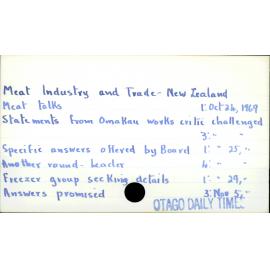 Meat Industry and Trade - New Zealand
Meat talks 1: Oct 24, 1969
Statements from Omakau works critic challenged
3: " "
Specific answers offered by Board 1: " 25, "
Another round - leader 4: " "
Freezer group seeking details 1: " 29, "
Answers promised 3: Nov 5, "
OTAGO DAILY TIMES